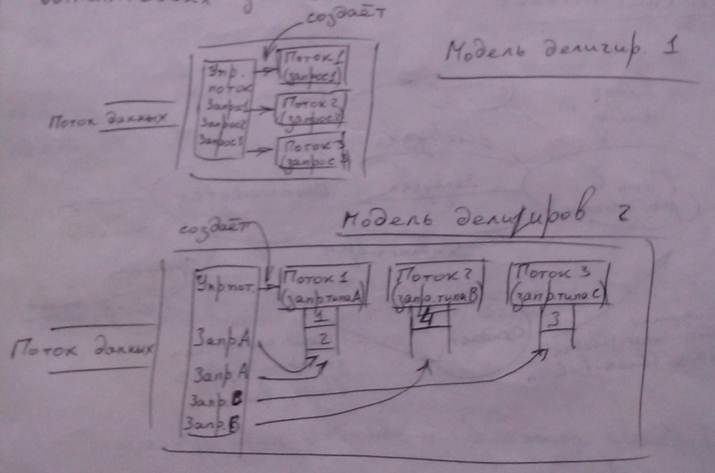 создаёт
Модель делигир. 1
Упр.
поток
Запрос1
Запрос2
Запрос3
Поток 1
(запрос1)
Поток 2
Поток 3
Поток данных
Модель делигиров 2
создаёт
Упр пот.
Поток 1
(запр типа А)
1
2
Поток 2
(запр. типа В)
4
Поток 3
(запр типа С)
3
Запр А
Запр А
Запр. В
Запр. Б
Поток данных